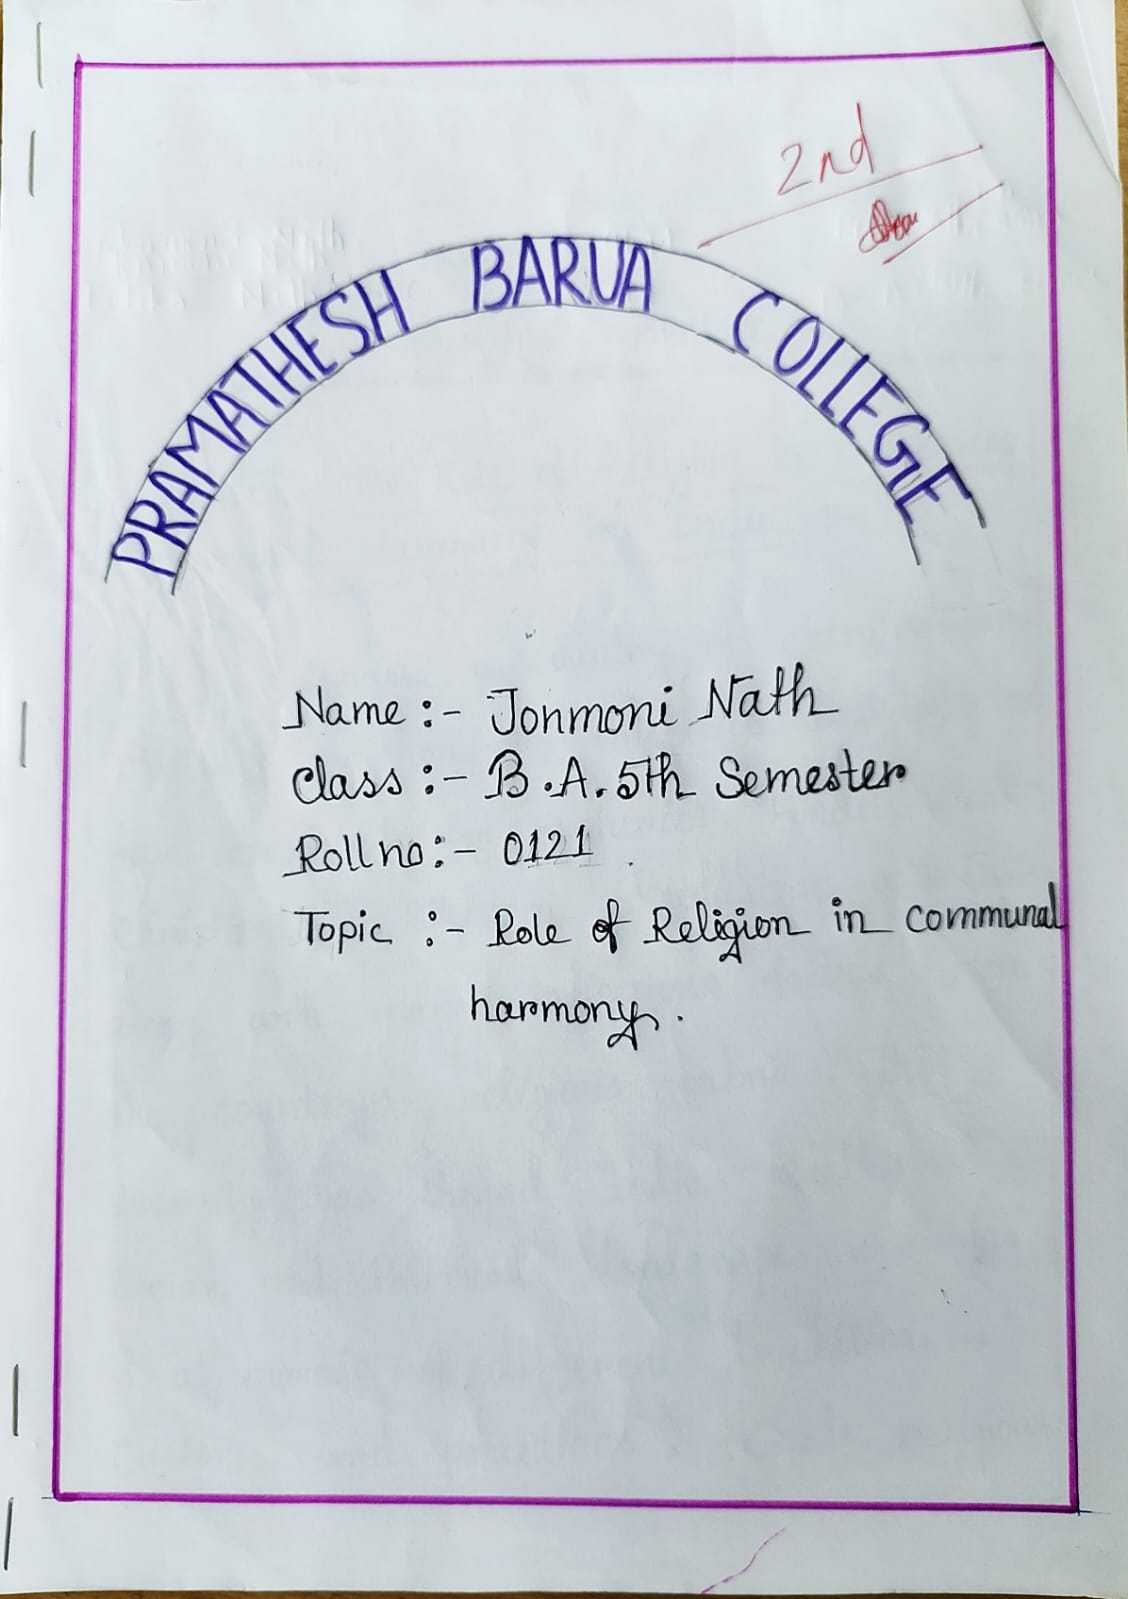 2nd
PRAMATHESH BARUA COLLEGE
Name :- Jonmoni Nath
Class :- B.A. 5th Semester
Roll no :- 0121
Topic :- Role of Religion in communal
harmony.